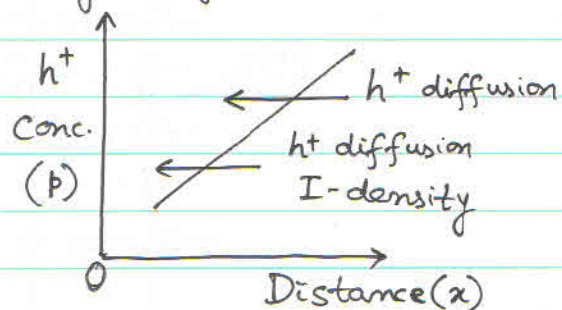 h⁺
conc.
(p)
h⁺ diffusion
h⁺ diffusion
I-density
O
Distance(x)